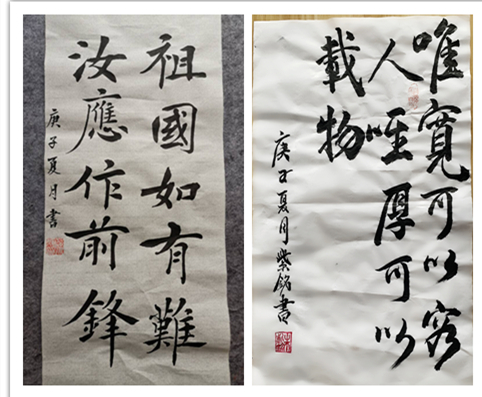 祖國如有難
汝應作前鋒
庚子夏月書
唯寬可以容
人唯厚可以
載物
庚子夏月紫銘書